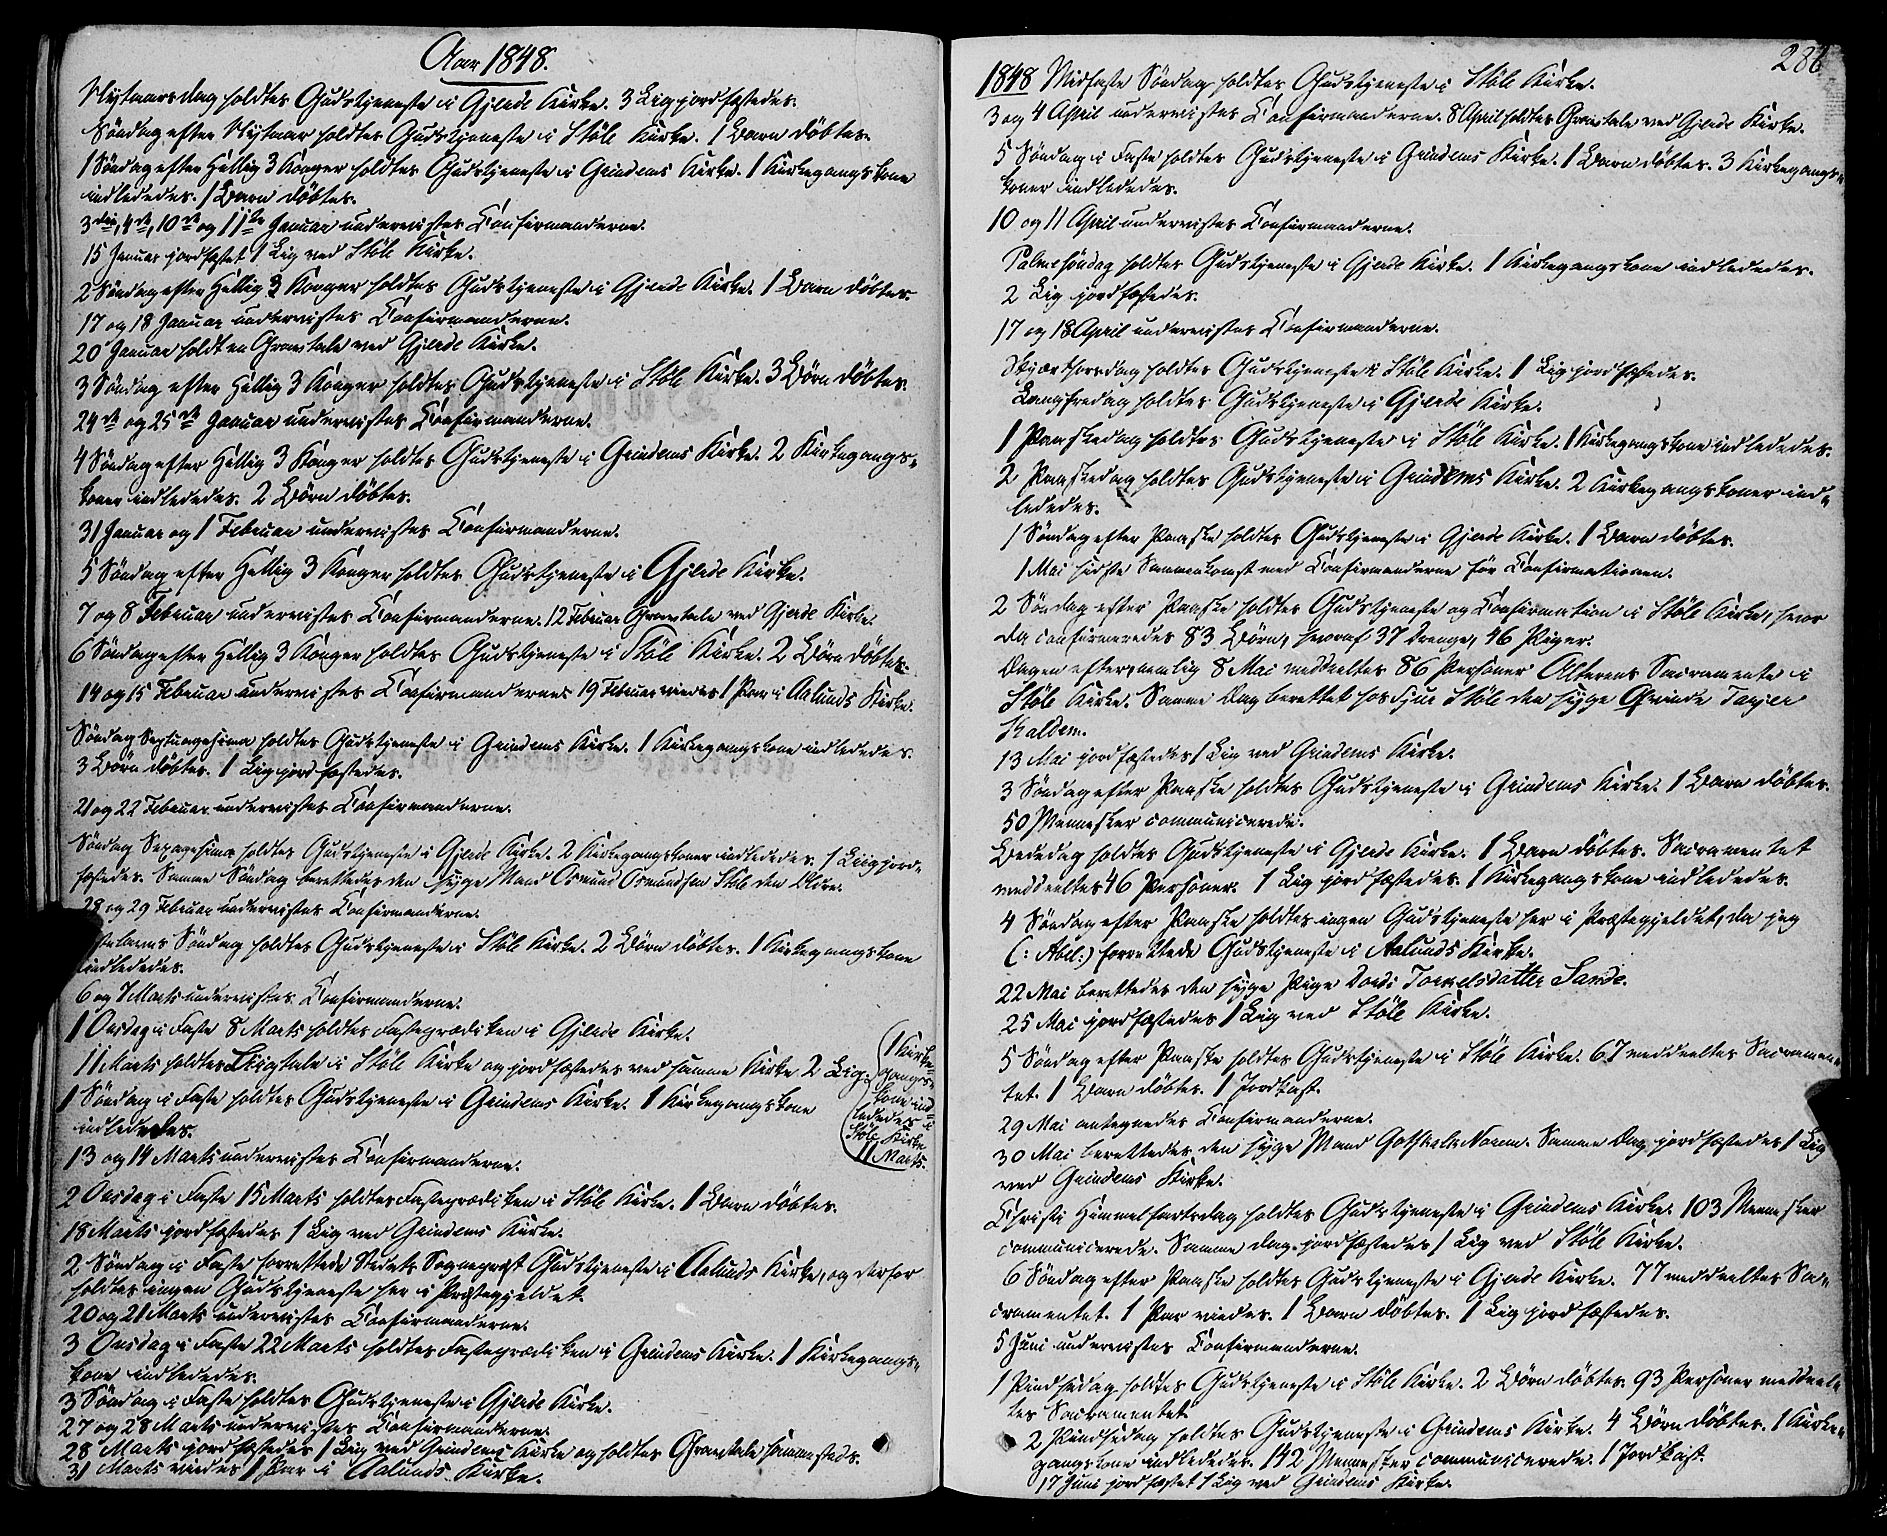 Aar 1848.
Nytaarsdag holdtes Gudstjeneste i Gjerde Kirke. 3 Lig jordfæstedes.
Søndag efter Nytaar holdtes Gudstjeneste i Støle Kirke. 1 Barn døbtes.
1 Søndag efter Hellig 3 Konger holdtes Gudstjeneste i Grindems Kirke. 1 Kirkegangskone
indlededes. 1 Barn døbtes.
3die, 4de, 10de og 11te Januar undervistes Confirmanderne.
15 Januar jordfæstet 1 Lig ved Støle Kirke.
2 Søndag efter Hellig 3 Konger holdtes Gudstjeneste i Gjerde Kirke. 1 Barn døbtes.
17 og 18 Januar undervistes Confirmanderne.
20 Januar holdt en Gravtale ved Gjerde Kirke.
3 Søndag efter Hellig 3 Konger holdtes Gudstjeneste i Støle Kirke. 3 Børn døbtes.
24de og 25de Januar undervistes Confirmanderne.
4 Søndag efter Hellig 3 Konger holdtes Gudstjeneste i Grindems Kirke. 2 Kirkegangs-
koner indlededes. 2 Børn døbtes.
31 Januar og 1 Februar undervistes Confirmanderne.
5 Søndag efter Hellig 3 Konger holdtes Gudstjeneste i Gjerde Kirke.
7 og 8 Februar undervistes Confirmanderne. 12 Februar Gravtale ved Gjerde Kirke.
6 Søndag efter Hellig 3 Konger holdtes Gudstjeneste i Støle Kirke. 2 Børn døbtes.
14 og 15 Februar undervistes Confirmanderne 19 Februar viedes 1 Par i Aalunds Kirke.
Søndag Septuagesima holdtes Gudstjeneste i Grindems Kirke. 1 Kirkegangskone indlededes.
3 Børn døbtes. 1 Lig jordfæstedes.
21 og 22 Februar undervistes Confirmanderne.
Søndag Sexagesima holdtes Gudstjeneste i Gjerde Kirke. 2 Kirkegangskoner indlededes. 1 Lig jord-
fæstedes. Samme Søndag berettedes den syge Mand Osmund Osmundsen Støle den Ældre.
28 og 29 Februar undervistes Confirmanderne.
Fastelavns Søndag holdtes Gudstjeneste i Støle Kirke. 2 Børn døbtes. 1 Kirkegangskone
indlededes.
6 og 7 Marts undervistes Confirmanderne.
1 Onsdag i Faste 8 Marts holdtes Fasteprædiken i Gjerde Kirke.
11 Marts holdtes Liigtale i Støle Kirke og jordfæstedes ved samme Kirke 2 Lig.
(1 Kirke-
gangs-
kone ind-
lededes i
Støle Kirke
11 Marts.
1 Søndag i Faste holdtes Gudstjeneste i Grindems Kirke. 1 Kirkegangskone
indlededes.
13 og 14 Marts undervistes Confirmanderne.
2 Onsdag i Faste 15 Marts holdtes Fasteprædiken i Støle Kirke. 1 Barn døbtes.
18 Marts jordfæstedes 1 Lig ved Grindems Kirke.
2 Søndag i Faste forrettede Stedets Sognepræst Gudstjeneste i Aalunds Kirke, og derfor
holdtes ingen Gudstjeneste her i Præstegjeldet.
20 og 21 Marts undervistes Confirmanderne.
3 Onsdag i Faste 22 Marts holdtes Fasteprædiken i Grindems Kirke. 1 Kirkegangs-
kone indlededes.
3 Søndag i Faste holdtes Gudstjeneste i Gjerde Kirke.
27 og 28 Marts undervistes Confirmanderne.
28 Marts jordfæstedes 1 Lig ved Grindems Kirke og holdtes Gravtale sammesteds.
31 Marts viedes 1 Par i Aalunds Kirke.
286
1848 Midfaste Søndag holdtes Gudstjeneste i Støle Kirke.
3 og 4 April undervistes Confirmanderne. 8 April holdtes Gravtale ved Gjerde Kirke.
5 Søndag i Faste holdtes Gudstjeneste i Grindems Kirke. 1 Barn døbtes. 3 Kirkegangs-
koner indlededes.
10 og 11 April undervistes Confirmanderne.
Palmesøndag holdtes Gudstjeneste i Gjerde Kirke. 1 Kirkegangskone indlededes.
2 Lig jordfæstedes.
17 og 18 April undervistes Confirmanderne.
Skjærtorsdag holdtes Gudstjeneste i Støle Kirke. 1 Lig jordfæstedes.
Langfredag holdtes Gudstjeneste i Gjerde Kirke.
1 Paaskedag holdtes Gudstjeneste i Støle Kirke. 1 Kirkegangskone indlededes.
2 Paaskedag holdtes Gudstjeneste i Grindems Kirke. 2 Kirkegangskoner ind-
lededes.
1 Søndag efter Paaske holdtes Gudstjeneste i Gjerde Kirke. 1 Barn døbtes.
1 Mai sidste Sammenkomst med Confirmanderne før Confirmationen.
2 Søndag efter Paaske holdtes Gudstjeneste og Confirmation i Støle Kirke, hvor
da confirmeredes 83 Børn, hvoraf 37 Drenge, 46 Piger.
Dagen efter, nemlig 8 Mai meddeeltes 86 Personer Alterens Sacramente i
Støle Kirke. Samme Dag berettet hos Sjur Støle den syge Qvinde Tarjer
Kaldem.
13 Mai jordfæstedes 1 Lig ved Grindems Kirke.
3 Søndag efter Paaske holdtes Gudstjeneste i Grindems Kirke. 1 Barn døbtes.
50 Mennesker communicerede.
Bededag holdtes Gudstjeneste i Gjerde Kirke. 1 Barn døbtes. Sacramentet
meddeeltes 46 Personer. 1 Lig jordfæstedes. 1 Kirkegangskone indlededes.
4 Søndag efter Paaske holdtes ingen Gudstjeneste her i Præstegjeldet, da jeg
(: Abel:) forrettede Gudstjeneste i Aalunds Kirke.
22 Mai berettedes den syge Pige Dordi Torkelsdatter Sande.
25 Mai jordfæstedes 1 Lig ved Støle Kirke.
5 Søndag efter Paaske holdtes Gudstjeneste i Støle Kirke. 67 meddeeltes Sacramen-
tet. 1 Barn døbtes. 1 Jordkast.
29 Mai antegnedes Confirmanderne.
30 Mai berettedes den syge Mand Gotskalk Norem. Samme Dag jordfæstedes 1 Lig
ved Grindems Kirke.
Christi Himmelfartsdag holdtes Gudstjeneste i Grindems Kirke. 103 Mennesker
communicerede. Samme Dag jordfæstedes 1 Lig ved Støle Kirke.
6 Søndag efter Paaske holdtes Gudstjeneste i Gjerde Kirke. 77 meddeeltes Sa-
cramentet. 1 Par viedes. 1 Barn døbtes. 1 Lig jordfæstedes.
5 Juni undervistes Confirmanderne.
1 Pindsedag holdtes Gudstjeneste i Støle Kirke. 2 Børn døbtes. 93 Personer meddeel-
tes Sacramentet
2 Pindsedag holdtes Gudstjeneste i Grindems Kirke. 4 Børn døbtes. 1 Kirke-
gangskone indlededes. 142 Mennesker communicerede. 1 Jordkast.
17 Juni jordfæstet 1 Lig ved Grindems Kirke.